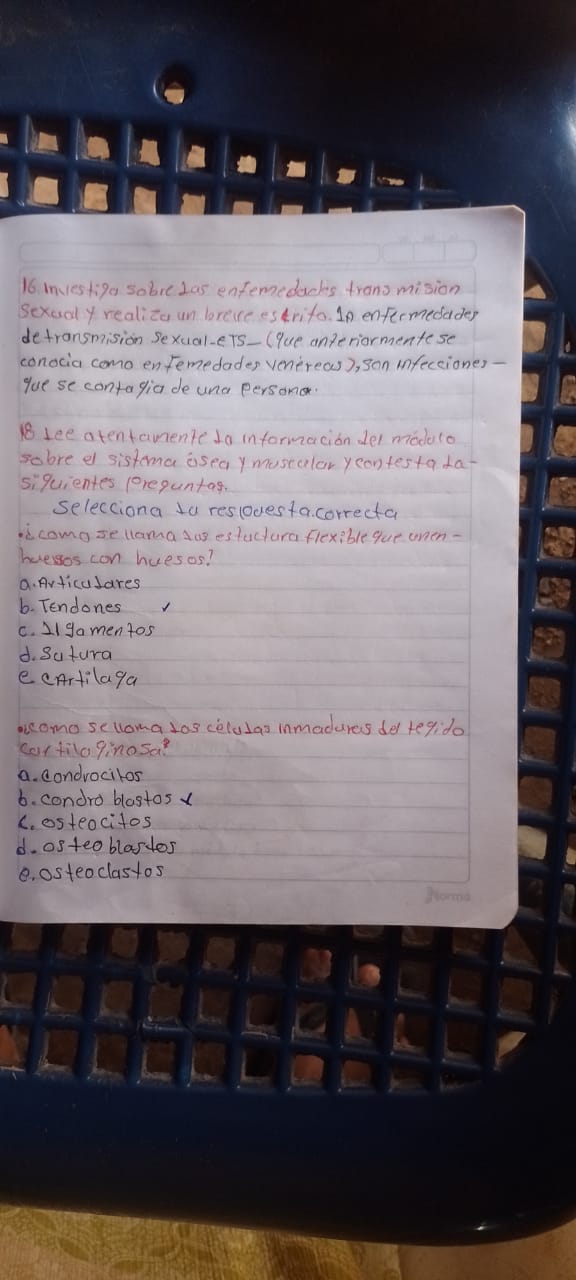 16. investiga sobre las enfemedades transmision
Sexual y realiza un breve escrito. la enfermedades
de transmisión Sexual-ETS-(que anteriormente se
conocia como enfemedades venéreas), son infecciones-
que se contagia de una persona.
18 Lee atentamente la información del módulo
sobre el sistema ósea y muscular y contesta la-
siguientes preguntas.
Selecciona la respuesta.correcta
.¿como se llama las estuctura flexible que unen-
huesos con huesos?
a. Articulares
b. Tendones ✓
c. ligamentos
d. Sutura
e. cArtilaga
.¿como se llama los células inmadureas del tegido
cartilaginosa?
a. Condrocitos
b. condro blastos ✓
c. osteocitos
d. osteo blastos
e. osteoclastos
Norma